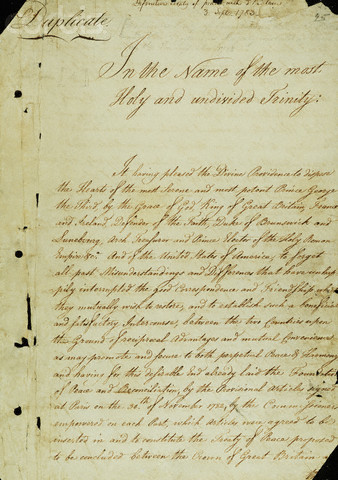 Definitive treaty of peace with
3 Sept. 1783
95
Duplicate
In the Name of the most
Holy and undivided Trinity:
It having pleased the Divine Providence to dispose
the Hearts of the most Serene and most potent Prince George
the Third by the Grace of God King of Great Britain, France
and Ireland, Defender of the Faith, Duke of Brunswick and
Luneburg, Arch Treasurer and Prince Elector of the Holy Roman
Empire &ca. And of the United States of America, to forget
all past Misunderstandings and Differences that have unhap-
pily interrupted the good Correspondence and Friendship which
they mutually wish to restore; and to establish such a beneficial
and satisfactory Intercourse between the two Countries upon
the Ground of reciprocal Advantages and mutual Convenience
as may promote and secure to both perpetual Peace & Harmony
and having for this desirable End already laid the Foundation
of Peace and Reconciliation by the Provisional Articles signed
at Paris on the 30th of November 1782, by the Commissioners
empowered on each Part, which Articles were agreed to be
inserted in and to constitute the Treaty of Peace proposed
to be concluded between the Crown of Great Britain